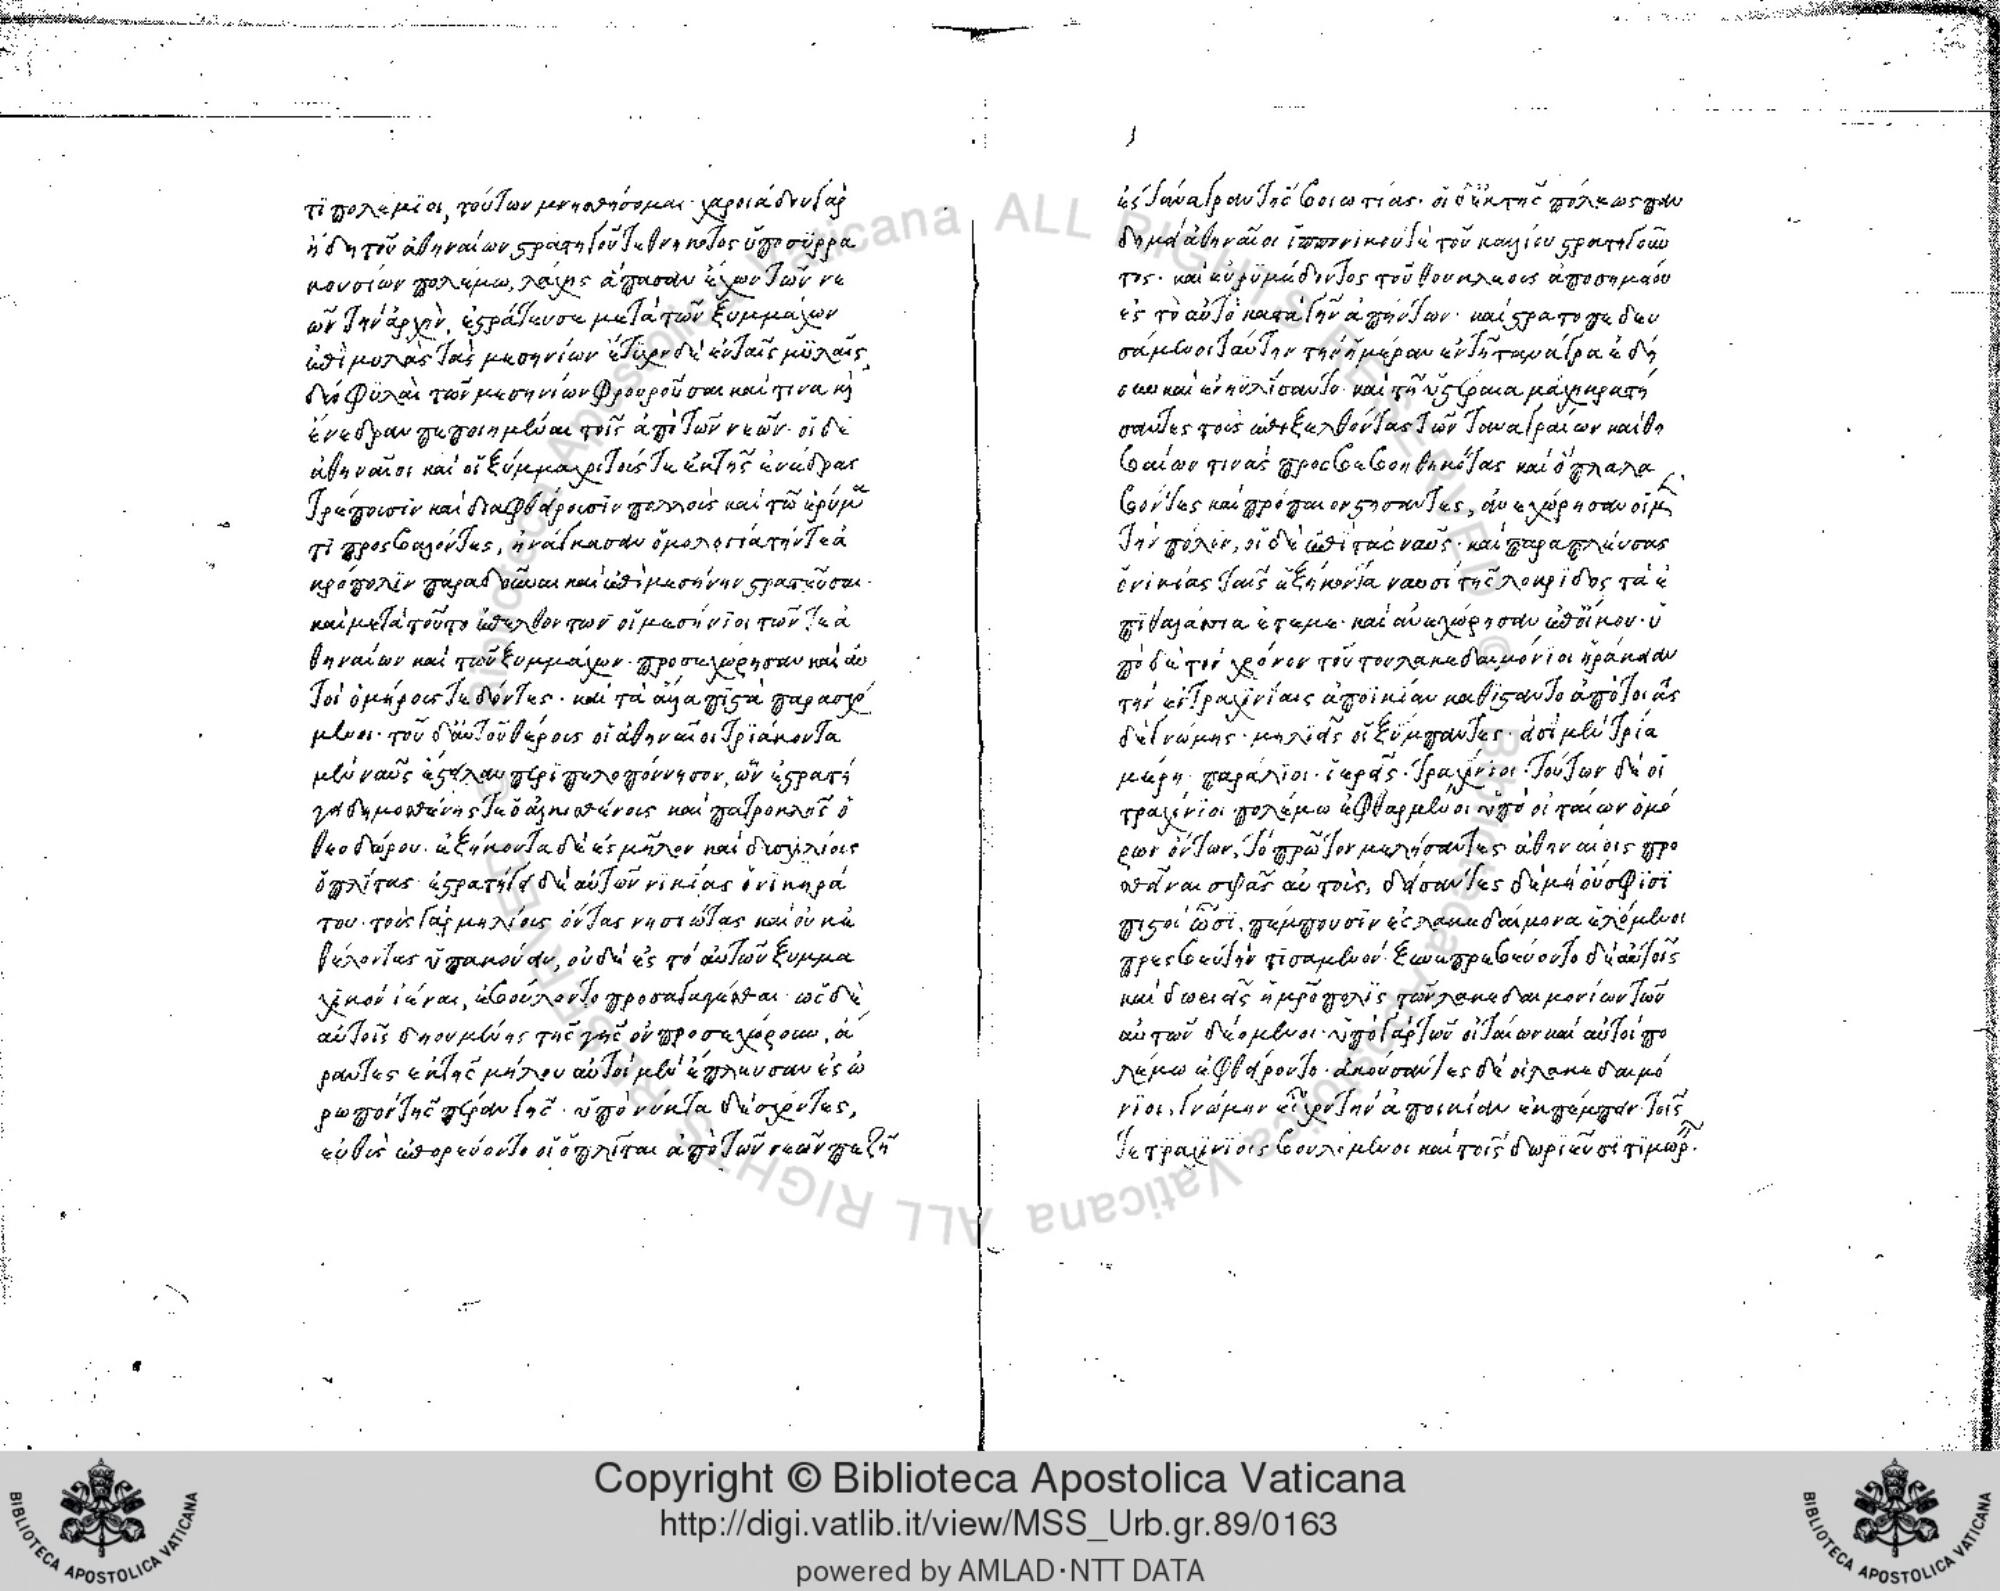 τι πολέμιοι, τούτων μνησθήσομαι· χαροιάδου γὰρ
ἤδη τοῦ ἀθηναίων στρατηγοῦ τεθνηκότος ὑπο συρρα
κουσίων πολέμω, λάχης ἅπασαν ἔχων τῶν νε
ῶν τὴν ἀρχὴν, ἐστράτευσε μετὰ τῶν ξυμμάχων
ἐπὶ μυλὰς τὰς μεσηνίων ἔτυχον δὲ ἐν ταῖς μύλαῖς
δύο φυλαὶ τῶν μεσηνίων φρουροῦσαι καί τινα κỳ
ἐνέδραν πεποιημέναι τοῖς ἀπὸ τῶν νεῶν· οἱ δὲ
ἀθηναῖοι καὶ οἱ ξύμμαχοι τούς τε ἐκ τῆς ἐνέδρας
τρέπουσιν καὶ διαφθείρουσιν πολλοὺς καὶ τῶ ἐρύμα
τι προσβαλόντες, ἠνάγκασαν ὁμολογία τήν τε ἀ
κρόπολιν παραδοῦναι καὶ ἐπὶ μεσήνην στρατεῦσαι·
καὶ μετὰ τοῦτο ἐπελθόντων οἱ μεσήνιοι τῶν τε ἀ
θηναίων καὶ τῶν ξυμμάχων· προσεχώρησαν καὶ αὐ
τοὶ ὁμήρους τε δόντες· καὶ τὰ ἄλλα πιστὰ παρασχό
μενοι· τοῦ δ' αὐτοῦ θέρους οἱ ἀθηναῖοι τριάκοντα
μὲν ναῦς ἔστειλαν περὶ πελοπόννησον, ὧν ἐστρατή
γει δημοσθένης τε ὁ ἀλκισθένους καὶ πατροκλῆς ὁ
θεοδώρου· ἑξήκοντα δὲ ἐς μῆλον καὶ δισχιλίους
ὁπλίτας· ἐστρατήγει δὲ αὐτῶν νικίας ὁ νικηρά
του· τοὺς γὰρ μηλίους ὄντας νησιώτας καὶ οὐκ ἐ
θέλοντας ὑπακούειν, οὐδὲ ἐς τὸ αὐτῶν ξυμμα
χικὸν ἰέναι, ἐβούλοντο προσαγαγέσθαι· ὡς δὲ
αὐτοῖς δηουμένης τῆς γῆς οὐ προσεχώρουν, ἄ
ραντες ἐκ τῆς μήλου αὐτοὶ μὲν ἔπλευσαν ἐς ὠ
ρωπὸν τῆς πέραν γῆς· ὑπὸ νύκτα δὲ σχόντες,
εὐθὺς ἐπορεύοντο οἱ ὁπλῖται ἀπὸ τῶν νεῶν πεζῆ
ἐς τάναγραν τῆς βοιωτίας· οἱ δ' ἐκ τῆς πόλεως παν
δημεὶ ἀθηναῖοι ἱππονίκου τὲ τοῦ καλλίου στρατηγοῦν
τος· καὶ εὐρυμέδοντος τοῦ θουκλέους ἀπὸ σημείου
ἐς τὸ αὐτὸ κατὰ γῆν ἀπήντων· καὶ στρατοπεδευ
σάμενοι ταύτην τὴν ἡμέραν ἐν τῆ ταναγρα ἐδή
ουν καὶ ἐνηυλίσαντο· καὶ τῆ ὑστεραια μάχη κρατή
σαντες τοὺς ἐπεξελθόντας τῶν ταναγραίων καὶ θη
βαίων τινὰς προσβεβοηθηκότας καὶ ὅπλα λα
βόντες καὶ τρόπαιον στήσαντες, ἀνεχώρησαν οἱ μὲν
τὴν πόλιν, οἱ δὲ ἐπὶ τὰς ναῦς· καὶ παραπλεύσας
ὁ νικίας ταῖς ἑξήκοντα ναυσὶ τῆς λοκρίδος τὰ ἐ
πιθαλάσσια ἔτεμε· καὶ ἀνεχώρησαν ἐπ' οἴκου· ὑ
πὸ δὲ τὸν χρόνον τοῦτον λακεδαιμόνιοι ἡράκλειαν
τὴν ἐν τραχινίαις ἀποικίαν καθίσταντο ἀπὸ τοιᾶς
δὲ γνώμης· μηλιᾶς οἱ ξύμπαντες· εἰσὶ μὲν τρία
μέρη· παράλιοι· ἱερᾶς· τραχίνιοι· τούτων δὲ οἱ
τραχίνιοι πολέμω ἐφθαρμένοι ὑπὸ οἰταίων ὁμό
ρων ὄντων, τὸ πρῶτον μελλήσαντες ἀθηναίοις προ
σθεῖναι σφᾶς αὐτοὺς, δείσαντες δὲ μὴ οὐ σφίσι
πιστοὶ ὦσι, πέμπουσιν ἐς λακεδαίμονα ἑλόμενοι
πρεσβευτὴν τισαμενόν· ξυνεπρεσβεύοντο δὲ αὐτοῖς
καὶ δωριεῖς ἡ μητρόπολις τῶν λακεδαιμονίων τῶν
αὐτῶν δεόμενοι· ὑπὸ γὰρ τῶν οἰταίων καὶ αὐτοὶ πο
λέμω ἐφθείροντο· ἀκούσαντες δὲ οἱ λακεδαιμό
νιοι, γνώμην εἶχον τὴν ἀποικίαν ἐκπέμπειν τοῖς
τε τραχινίοις βουλόμενοι καὶ τοῖς δωριεῦσι τιμωρ.
Copyright © Biblioteca Apostolica Vaticana
http://digi.vatlib.it/view/MSS_Urb.gr.89/0163
powered by AMLAD·NTT DATA